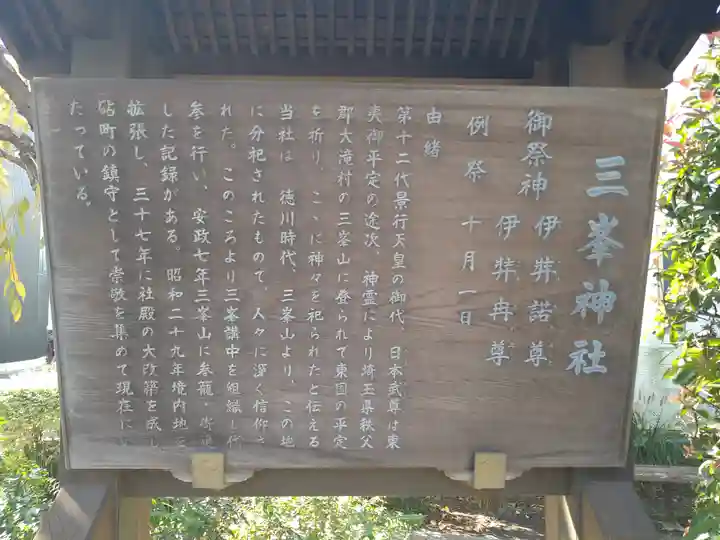 三峯神社
御祭神 伊弉諾尊
伊弉冉尊
例祭 十月一日
由緒
第十二代景行天皇の御代、日本武尊は東
夷御平定の途次、神霊により埼玉県秩父
郡大滝村の三峯山に登られて東国の平定
を祈り、こゝに神々を祀られたと伝える
当社は、徳川時代、三峯山より、この地
に分祀されたもので、人々に深く信仰さ
れた。このころより三峯講中を組織し代
参を行い、安政七年三峯山に参籠・
した記録がある。昭和二十九年境内地を
拡張し、三十七年に社殿の大改築を成し
砧町の鎮守として崇敬を集めて現在にい
たっている。